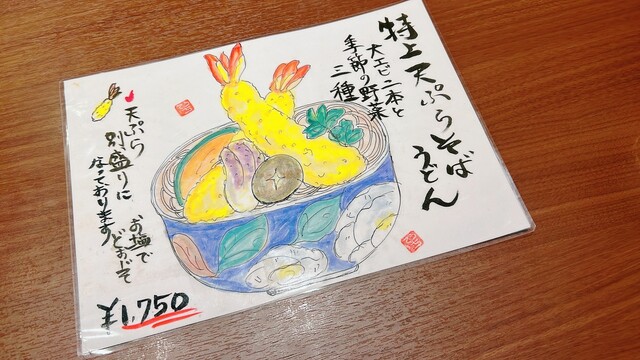 特上天ぷらそば
うどん
大エビ二本と
季節の野菜
三種
天ぷら
別盛りに
なっております
お塩で
どおぞ
¥1,750